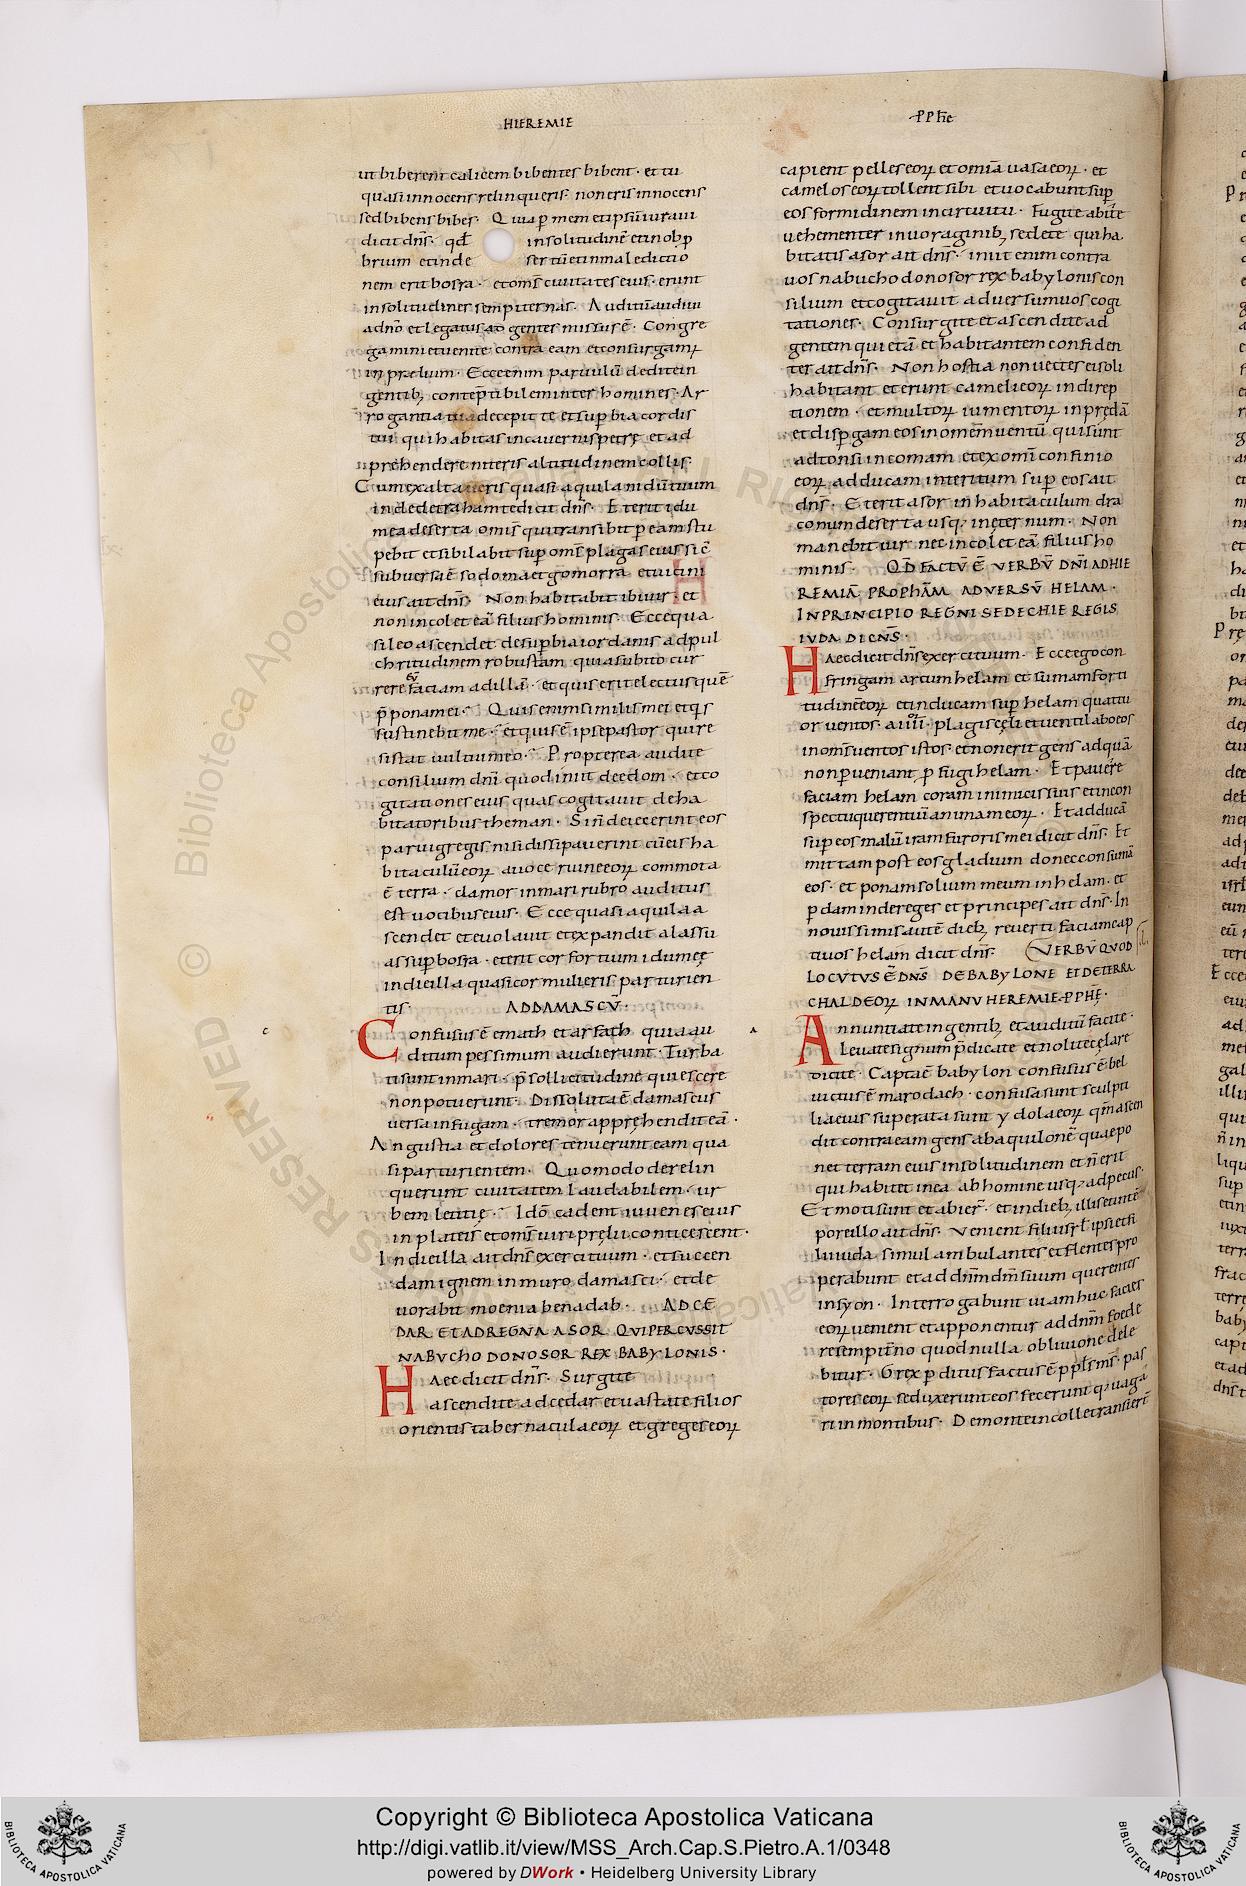 HIEREMIE
PPħe
ut biberent calicem bibentes bibent · et tu
quasi innocens relinqueris · non eris innocens
sed bibens bibes · Quia p̱ mem etipsū iuraui
dicit dn̄s · qđ in solitudinē et in obp̱
brium et in desertū et in maledictio
nem erit bosra · et om̄s ciuitates eius · erunt
in solitudines sempiternas · Auditū audiui
a dn̄o et legatus ad gentes missus ē · Congre
gamini et uenite contra eam et consurgamꝰ
in prælium · Ecce enim paruulū dedi te in
gentib; contēptibilem inter homines · Ar
rogantia tua decepit te et sup̱bia cordis
tui · qui habitas in cauernis petrę et ad
prehendere niteris altitudinem collis ·
Cum exaltaueris quasi aquila nidū tuum
inde detraham te dicit dn̄s · Et erit idu
mea deserta omis̄ qui transibit p̱ eam stu
pebit et sibilabit sup̱ om̄s plagas eius sic̄
subuersa ē sodoma et gomorra et uicini
eius ait dn̄s · Non habitabit ibi uir · et
non incolet eā filius hominis · Ecce qua
si leo ascendet de sup̱bia iordanis ad pul
chritudinem robustam quia subito cur
rere faciam ad illā · et quis erit electus quē
p̄ponam ei · Quis enim similis mei et q̱s
sustinebit me · et quis ē ipse pastor qui re
sistat uultui meo · Propterea audite
consilium dn̄i quod iniit de edom · et co
gitationes eius quas cogitauit de ha
bitatoribus theman · Si n̄ deiecerint eos
parui gregis nisi dissipauerint cū eis ha
bitaculū eoꝝ a uoce ruine eoꝝ commota
ē terra · clamor in mari rubro auditus
est uocis eius · Ecce quasi aquila a
scendet et euolauit et expandit alas su
as sup̱ bosra · et erit cor fortium idumeę
in die illa quasi cor mulieris parturien
tis · AD DAMASCV̄ ·
Confusus ē emath et arfath quia au
ditum pessimum audierunt · Turba
ti sunt in mari · p̄ sollicitudine quiescere
non potuerunt · Dissoluta ē damascus
uersa in fugam · tremor apprehendit eā ·
Angustia et dolores tenuerunt eam qua
si parturientem · Quomodo derelin
querunt ciuitatem laudabilem · ur
bem letitię · Idō cadent iuuenes eius
in plateis et om̄s uiri pręlii conticescent ·
In die illa ait dn̄s exercituum · et succen
dam ignem in muro damasci · et de
uorabit moenia benadab · AD CE
DAR ET AD REGNA ASOR QVI PERCVSSIT
NABVCHODONOSOR REX BABYLONIS ·
Haec dicit dn̄s · Surgite
ascendite ad cedar et uastate filios
orientis tabernacula eoꝝ et greges eoꝝ
capient pelles eoꝝ et omia uasa eoꝝ · et
camelos eoꝝ tollent sibi et uocabunt sup̱
eos formidinem in circuitu · Fugite abite
uehementer in uoraginib; sedete qui ha
bitatis asor ait dn̄s · iniit enim contra
uos nabuchodonosor rex babylonis con
silium et cogitauit aduersum uos cogi
tationes · Consurgite et ascendite ad
gentem quietā et habitantem confiden
ter ait dn̄s · Non hostia non uectes ei soli
habitant et erunt cameli eoꝝ in direp
tionem · et multoꝝ iumentoꝝ in prędā
et disp̱gam eos in omem uentū qui sunt
adtonsi in comam et ex omi confinio
eoꝝ adducam interitum sup̱ eos ait
dn̄s · Et erit asor in habitaculum dra
conum deserta usq; in ęternum · Non
manebit uir nec incolet eā filius ho
minis · QD̄ FACTV̄ Ē VERBV̄ DN̄I AD HIE
REMIĀ PROPHĀM ADVERSV̄ HELAM ·
IN PRINCIPIO REGNI SEDECHIE REGIS
IVDA DICENS ·
Haec dicit dn̄s exercituum · Ecce ego con
fringam arcum helam et sumam forti
tudinē eoꝝ et inducam sup̱ helam quattu
or uentos · a iiii · plagis cęli et uentilabo eos
in om̄s uentos istos · et non erit gens ad quā
non p̱ueniant p̱fugi helam · Et pauere
faciam helam coram inimicis suis et in con
spectu querentiū animam eoꝝ · Et adducā
sup̱ eos malū iram furoris mei dicit dn̄s · Et
mittam post eos gladium donec consumā
eos · et ponam solium meum in helam · et
p̱dam inde reges et principes ait dn̄s · In
nouissimis autē dieb; reuerti faciam cap
tiuos helam dicit dn̄s · VERBV̄ QVOD
LOCVTVS Ē DN̄S DE BABYLONE ET DE TERRA
CHALDEOꝜ IN MANV HEREMIE PPHĘ̄ ·
Annuntiate in gentib; et auditū facite ·
Leuate signum p̄dicate et nolite cęlare
dicite · Capta ē babylon confusus ē bel
uictus ē marodach · confusa sunt sculpti
lia eius superata sunt ydola eoꝝ qm̄ ascen
dit contra eam gens ab aquilone quae po
net terram eius in solitudinem et n̄ erit
qui habitet in ea ab homine usq; ad pecus ·
Et moti sunt et abier̄ · et in dieb; illis et in tē
pore illo ait dn̄s · Venient filii isrl̄ ipsi et fi
lii iuda simul ambulantes et flentes pro
perabunt et ad dn̄m dm̄ suum querentes
in syon · Interrogabunt uiam huc facies
eoꝝ uenient et apponentur ad dn̄m foede
re sempitno quod nulla obliuione dele
bitur · Grex p̱ditus factus ē ppl̄s ms̄ · pas
tores eoꝝ seduxerunt eos fecerunt q; uaga
ri in montibus · De monte in colle transier̄